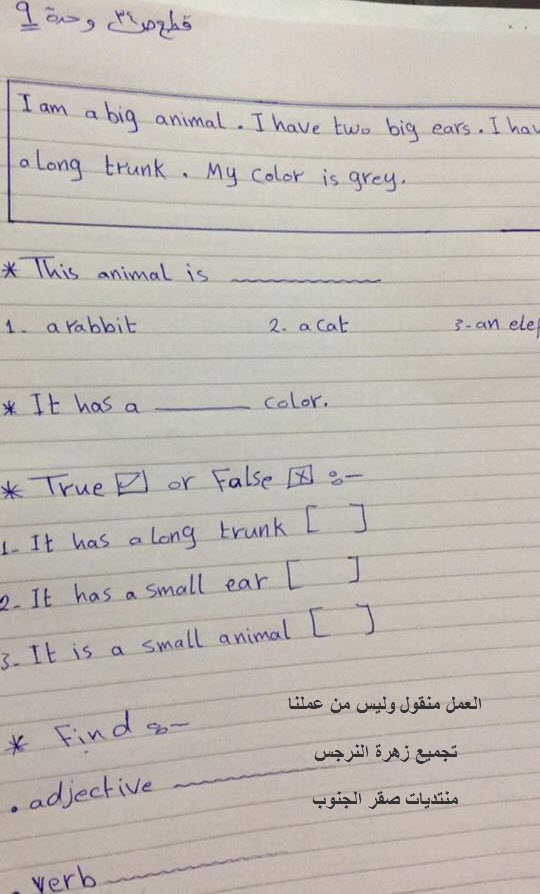 ص ٣٤ وحدة 9
I am a big animal. I have two big ears. I hav
a long trunk. My color is grey.
* This animal is ________
1. a rabbit 2- a cat 3-an ele
* It has a ______ color.
* True ☑ or False ☒ :-
1- It has a long trunk [ ]
2- It has a small ear [ ]
3- It is a small animal [ ]
العمل منقول وليس من عملنا
* Find :-
تجميع زهرة النرجس
. adjective ________
منتديات صقر الجنوب
. verb ________